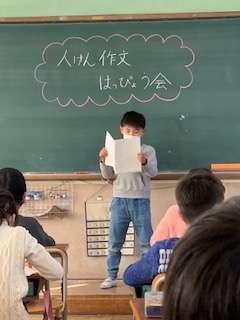 人けん作文
はっぴょう会